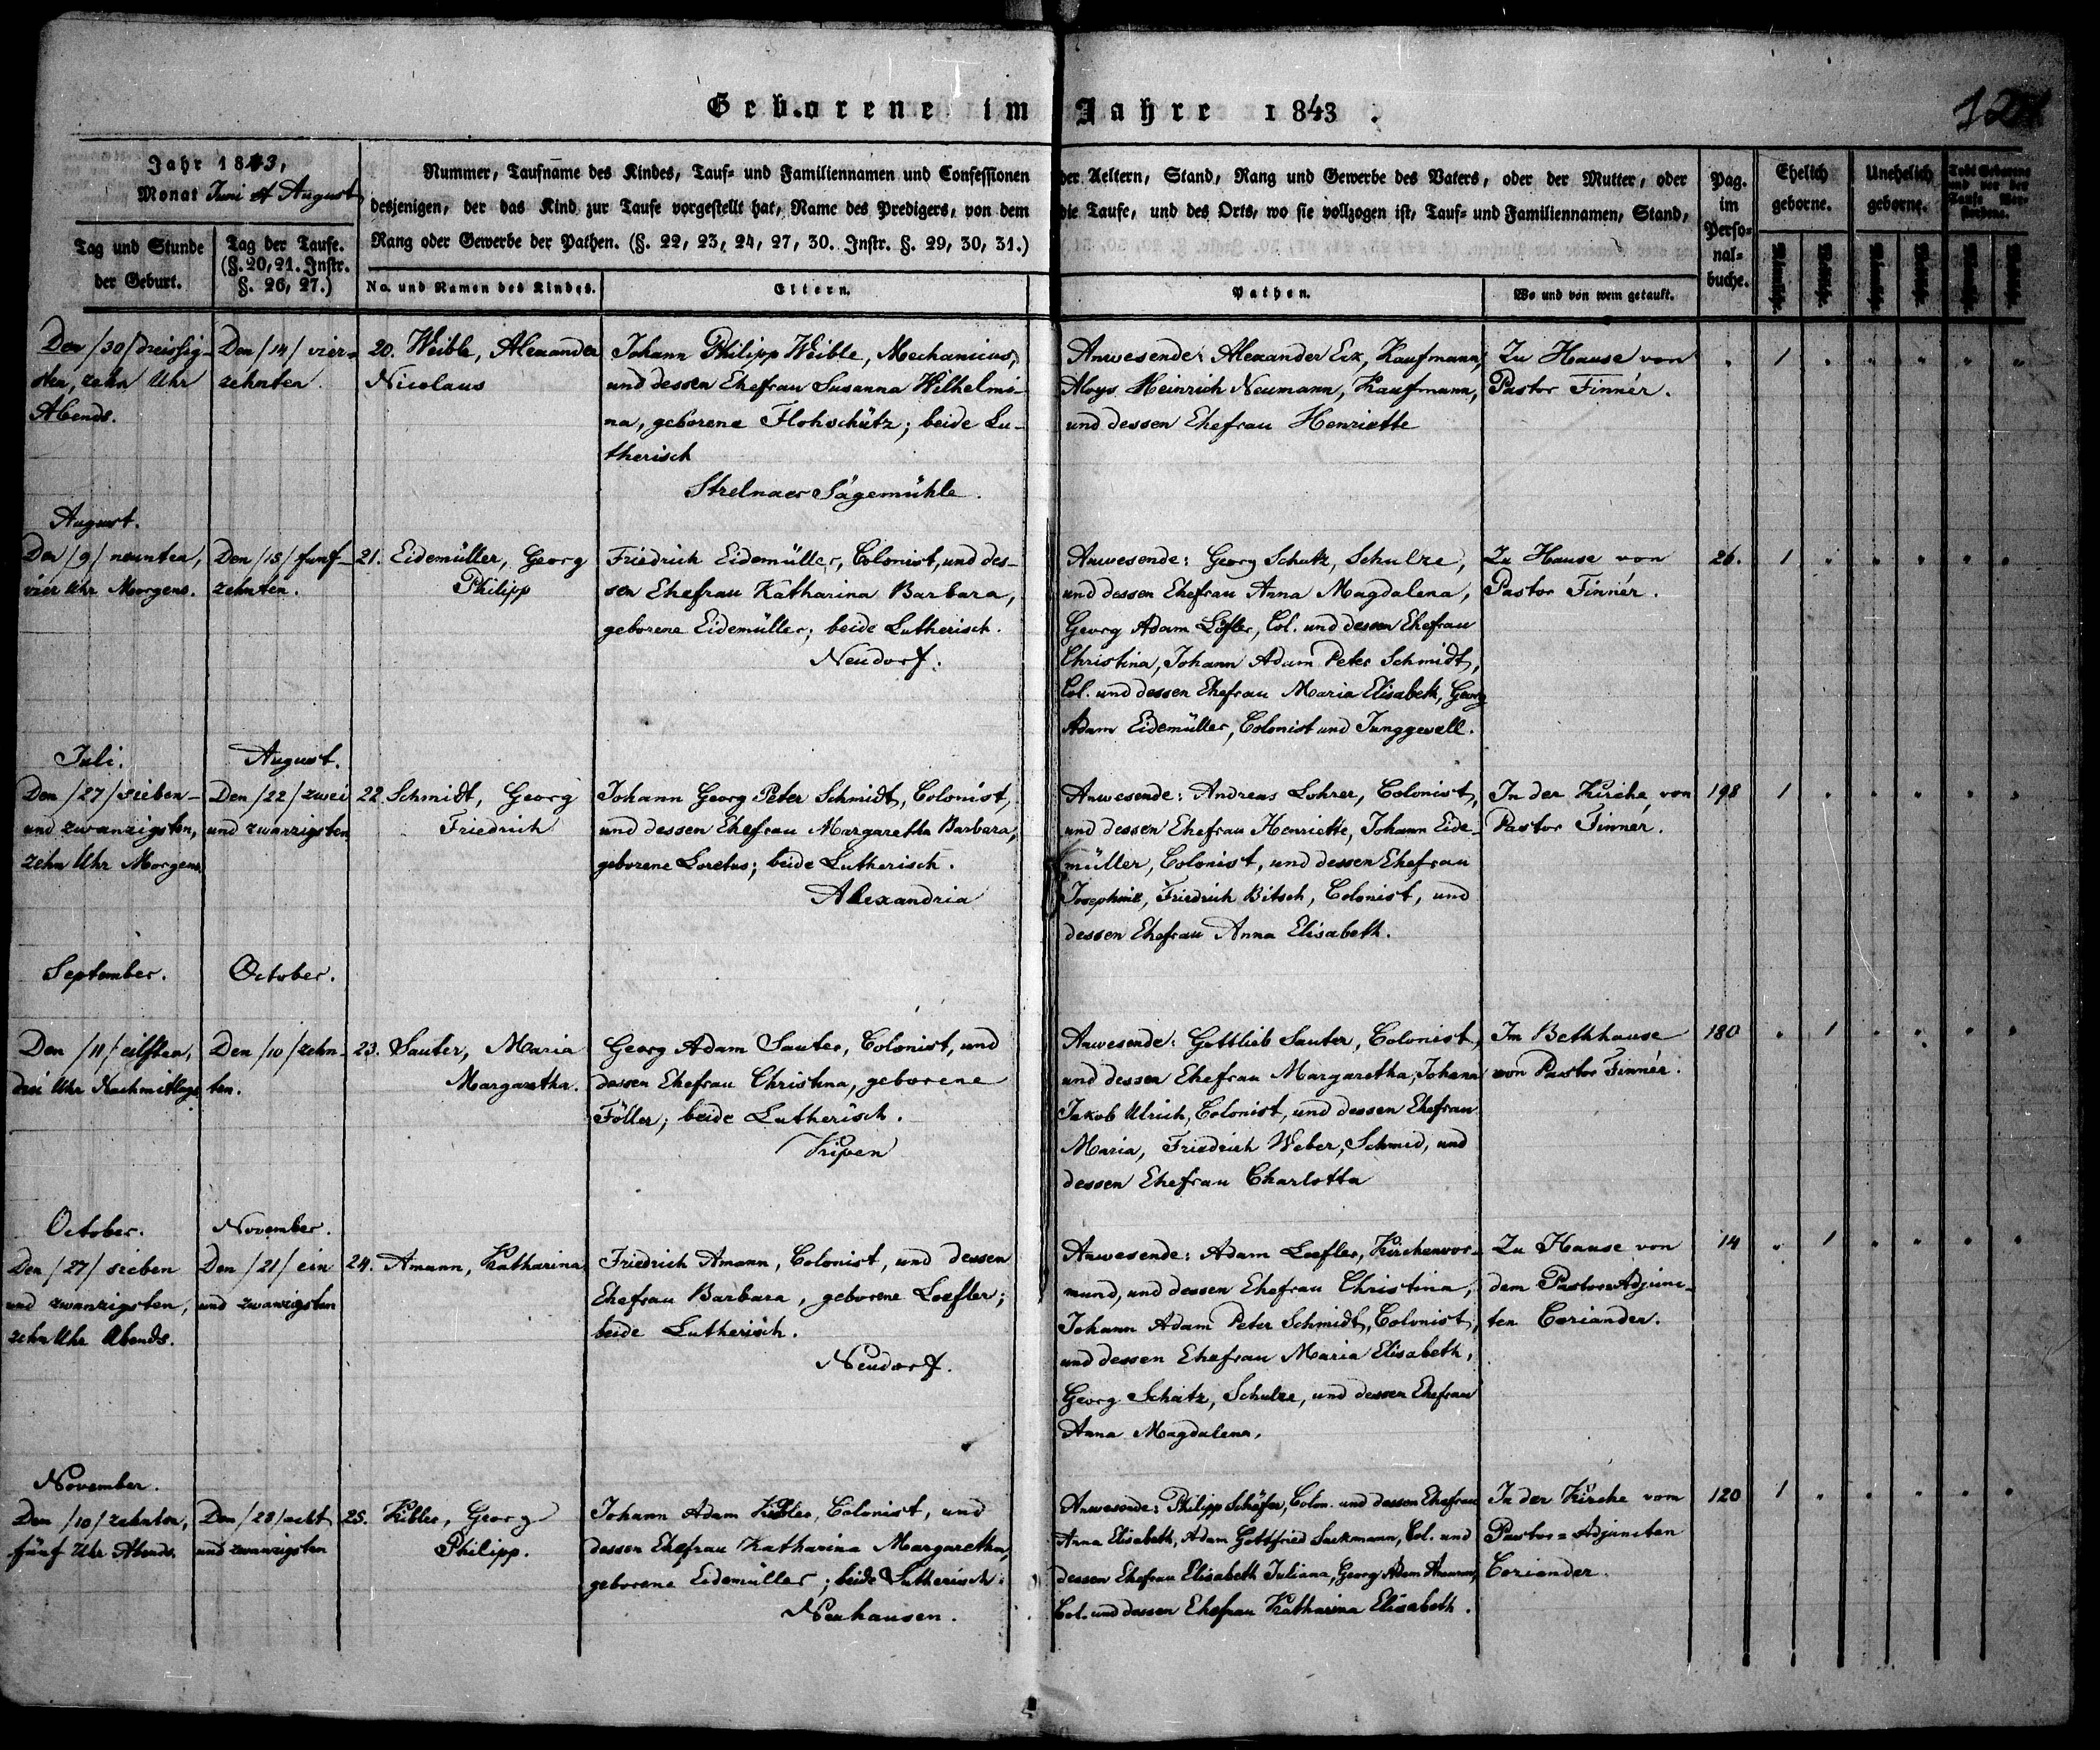 Geborene im Jahre 1843.
Jahr 1843,
Monat Juni et August
Tag und Stunde
der Geburt.
Tag der Taufe.
(§. 20, 21. Instr.
§. 26, 27.)
Nummer, Taufname des Kindes, Tauf- und Familiennamen und Confessionen der Aeltern, Stand, Rang und Gewerbe des Vaters, oder der Mutter, oder
desjenigen, der das Kind zur Taufe vorgestellt hat, Name des Predigers, von dem die Taufe, und des Orts, wo sie vollzogen ist, Tauf- und Familiennamen, Stand,
Rang oder Gewerbe der Pathen. (§. 22, 23, 24, 27, 30. Instr. §. 29, 30, 31.)
No. und Namen des Kindes.
Eltern.
Pathen.
Wo und von wem getauft.
Pag.
im
Perso-
nal-
buche.
Ehelich
geborne.
Unehelich
geborne.
Todt Geborene
und vor der
Taufe Ver-
storbene.
Männliche.
Weibliche.
Männliche.
Weibliche.
Männliche.
Weibliche.
Den /30/ dreissig-
sten, zehn Uhr
Abends.
Den /14/ vier-
zehnten.
20. Weible, Alexander
Nicolaus
Johann Philipp Weible, Mechanicus,
und dessen Ehefrau Susanna Wilhelmi-
na, geborene Flohschütz; beide Lu-
therisch
Strelnaer Sägemühle.
Anwesende: Alexander Eck, Kaufmann,
Aloys Heinrich Neumann, Kaufmann,
und dessen Ehefrau Henriette
Zu Hause von
Pastor Finnér.
1
August.
Den /9/ neunten,
vier Uhr Morgens.
Den /15/ funf-
zehnten.
21. Eidemüller, Georg
Philipp
Friedrich Eidemüller, Colonist, und des-
sen Ehefrau Katharina Barbara,
geborene Eidemüller; beide Lutherisch.
Neudorf.
Anwesende: Georg Schatz, Schulze,
und dessen Ehefrau Anna Magdalena,
Georg Adam Löfler, Col. und dessen Ehefrau
Christina, Johann Adam Peter Schmidt,
Col. und dessen Ehefrau Maria Elisabeth, Georg
Adam Eidemüller, Colonist und Junggesell.
Zu Hause von
Pastor Finnér.
26.
1
Juli.
Den /27/ sieben-
und zwanzigsten,
zehn Uhr Morgens
August.
Den /22/ zwei
und zwanzigsten
22 Schmidt, Georg
Friedrich
Johann Georg Peter Schmidt, Colonist,
und dessen Ehefrau Margaretha Barbara,
geborene Loretus; beide Lutherisch.
Alexandria
Anwesende: Andreas Lohrer, Colonist,
und dessen Ehefrau Henriette, Johann Eide-
müller, Colonist, und dessen Ehefrau
Josephine, Friedrich Bitsch, Colonist, und
dessen Ehefrau Anna Elisabeth.
In der Kirche, von
Pastor Finnér.
198
1
September.
Den /11/ eilften,
drei Uhr Nachmittags
October.
Den /10/ zehn-
ten.
23. Sauter, Maria
Margaretha.
Georg Adam Sauter, Colonist, und
dessen Ehefrau Christina, geborene
Föller; beide Lutherisch.
Kipen
Anwesende: Gottlieb Sauter, Colonist,
und dessen Ehefrau Margaretha, Johann
Jakob Ulrich, Colonist, und dessen Ehefrau
Maria, Friedrich Weber, Schmid, und
dessen Ehefrau Charlotta
Im Bethhause
von Pastor Finnér.
180
1
October.
Den /27/ sieben
und zwanzigsten,
zehn Uhr Abends.
November.
Den /21/ ein
und zwanzigsten
24. Amann, Katharina
Friedrich Amann, Colonist, und dessen
Ehefrau Barbara, geborene Loefler;
beide Lutherisch.
Neudorf.
Anwesende: Adam Loefler, Kirchenvor-
mund, und dessen Ehefrau Christina,
Johann Adam Peter Schmidt, Colonist,
und dessen Ehefrau Maria Elisabeth,
Georg Schatz, Schulze, und dessen Ehefrau
Anna Magdalena.
Zu Hause von
dem Pastor-Adjunc-
ten Coriander.
14
1
November.
Den /10/ zehnten,
fünf Uhr Abends.
Den /28/ acht
und zwanzigsten
25. Kibler, Georg
Philipp.
Johann Adam Kibler, Colonist, und
dessen Ehefrau Katharina Margaretha,
geborene Eidemüller; beide Lutherisch.
Neuhausen.
Anwesende: Philipp Schäfer, Colon. und dessen Ehefrau
Anna Elisabeth, Adam Gottfried Sackmann, Col. und
dessen Ehefrau Elisabeth Juliana, Georg Adam Amann,
Col. und dessen Ehefrau Katharina Elisabeth.
In der Kirche vom
Pastor-Adjuncten
Coriander.
120
1